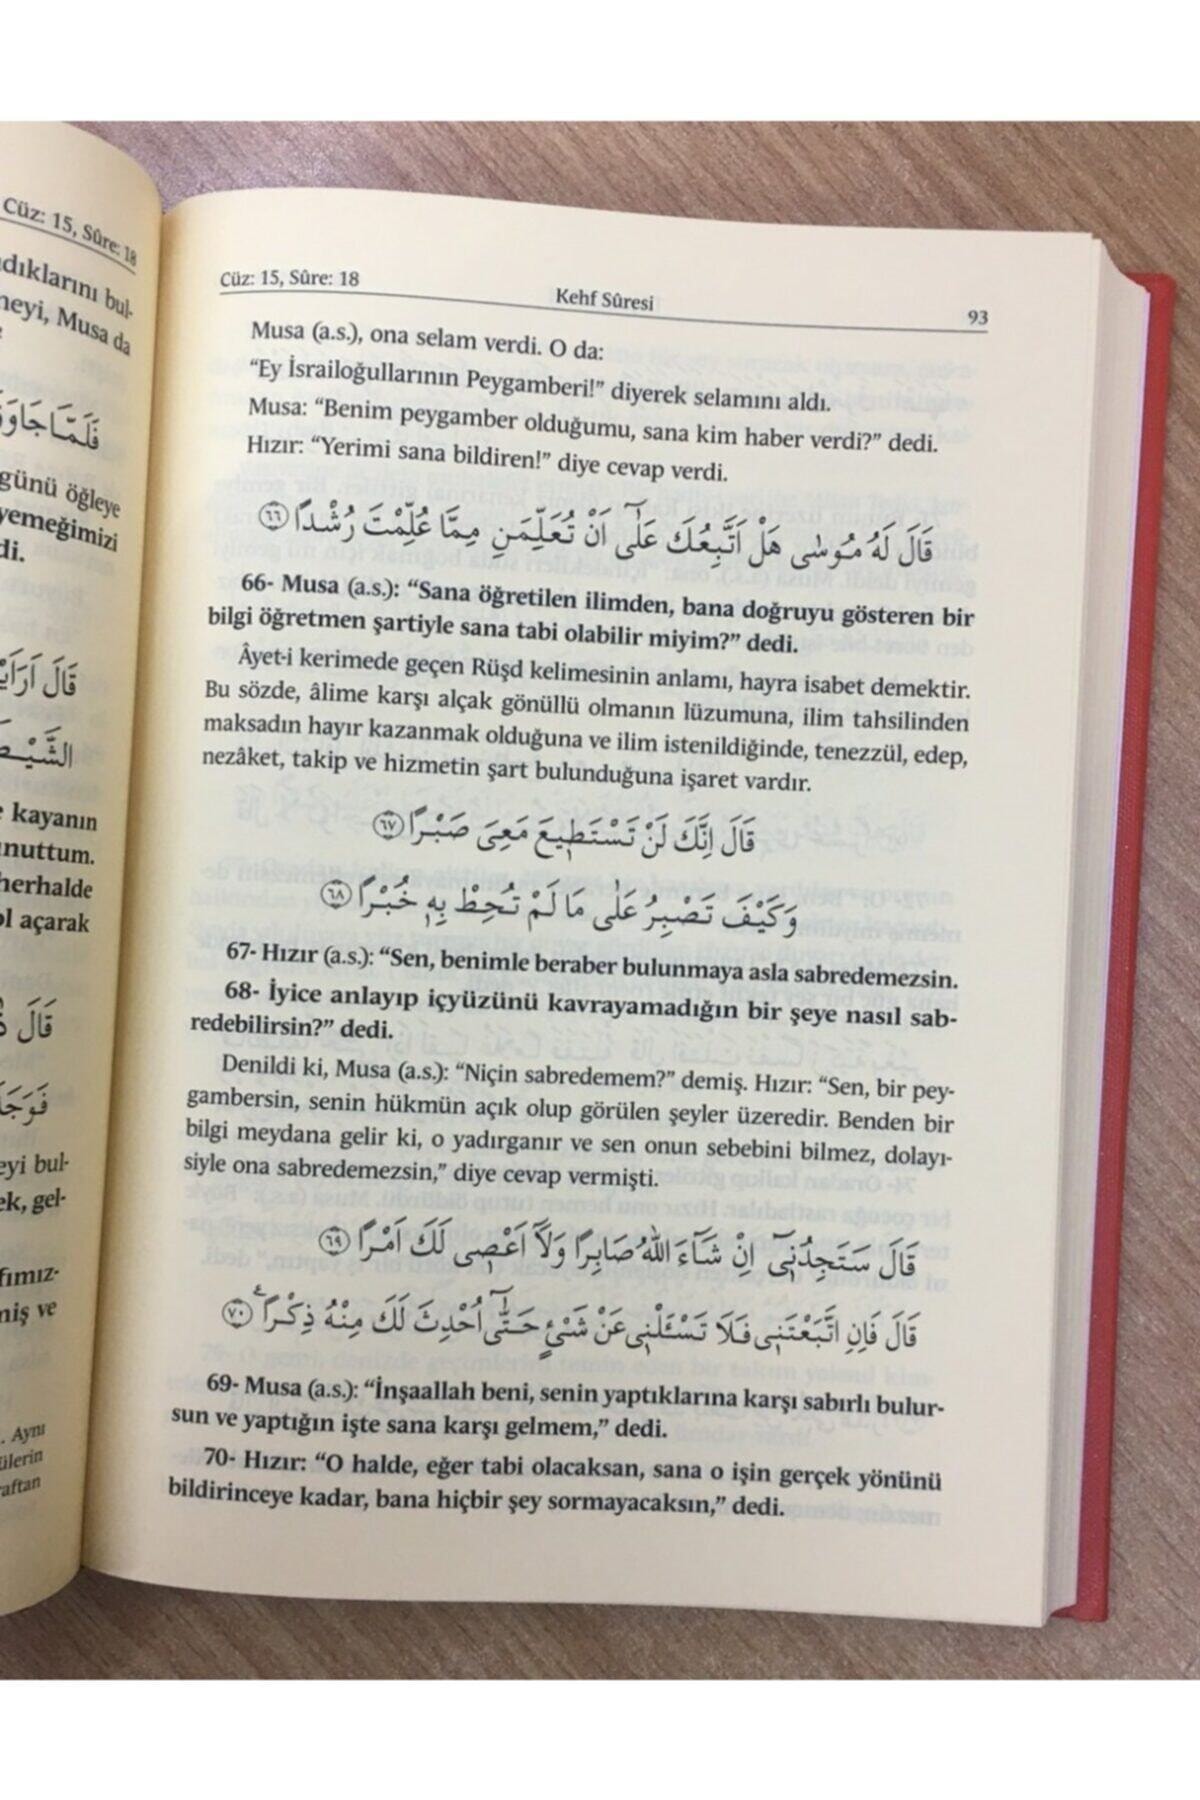 Cüz: 15, Sûre: 18
dıklarını bul-
neyi, Musa da
فَلَمَّا
günü öğleye
yemeğimizi
di.
قَالَ
e kayanın
nuttum.
herhalde
ol açarak
قَالَ
eyi bul-
ek, gel-
miş ve
. Aynı
ülerin
raftan
Cüz: 15, Sûre: 18 Kehf Sûresi 93
Musa (a.s.), ona selam verdi. O da:
“Ey İsrailoğullarının Peygamberi!” diyerek selamını aldı.
Musa: “Benim peygamber olduğumu, sana kim haber verdi?” dedi.
Hızır: “Yerimi sana bildiren!” diye cevap verdi.
قَالَ لَهُ مُوسٰى هَلْ اَتَّبِعُكَ عَلٰٓى اَنْ تُعَلِّمَنِ مِمَّا عُلِّمْتَ رُشْدًا ﴿٦٦﴾
66- Musa (a.s.): “Sana öğretilen ilimden, bana doğruyu gösteren bir
bilgi öğretmen şartiyle sana tabi olabilir miyim?” dedi.
Âyet-i kerimede geçen Rüşd kelimesinin anlamı, hayra isabet demektir.
Bu sözde, âlime karşı alçak gönüllü olmanın lüzumuna, ilim tahsilinden
maksadın hayır kazanmak olduğuna ve ilim istenildiğinde, tenezzül, edep,
nezâket, takip ve hizmetin şart bulunduğuna işaret vardır.
قَالَ اِنَّكَ لَنْ تَسْتَطٖيعَ مَعِىَ صَبْرًا ﴿٦٧﴾
وَكَيْفَ تَصْبِرُ عَلٰى مَا لَمْ تُحِطْ بِهٖ خُبْرًا ﴿٦٨﴾
67- Hızır (a.s.): “Sen, benimle beraber bulunmaya asla sabredemezsin.
68- İyice anlayıp içyüzünü kavrayamadığın bir şeye nasıl sab-
redebilirsin?” dedi.
Denildi ki, Musa (a.s.): “Niçin sabredemem?” demiş. Hızır: “Sen, bir pey-
gambersin, senin hükmün açık olup görülen şeyler üzeredir. Benden bir
bilgi meydana gelir ki, o yadırganır ve sen onun sebebini bilmez, dolayı-
siyle ona sabredemezsin,” diye cevap vermişti.
قَالَ سَتَجِدُنٖٓى اِنْ شَٓاءَ اللّٰهُ صَابِرًا وَلَٓا اَعْصٖى لَكَ اَمْرًا ﴿٦٩﴾
قَالَ فَاِنِ اتَّبَعْتَنٖى فَلَا تَسْـَٔلْنٖى عَنْ شَىْءٍ حَتّٰٓى اُحْدِثَ لَكَ مِنْهُ ذِكْرًا ﴿٧٠﴾
69- Musa (a.s.): “İnşaallah beni, senin yaptıklarına karşı sabırlı bulur-
sun ve yaptığın işte sana karşı gelmem,” dedi.
70- Hızır: “O halde, eğer tabi olacaksan, sana o işin gerçek yönünü
bildirinceye kadar, bana hiçbir şey sormayacaksın,” dedi.